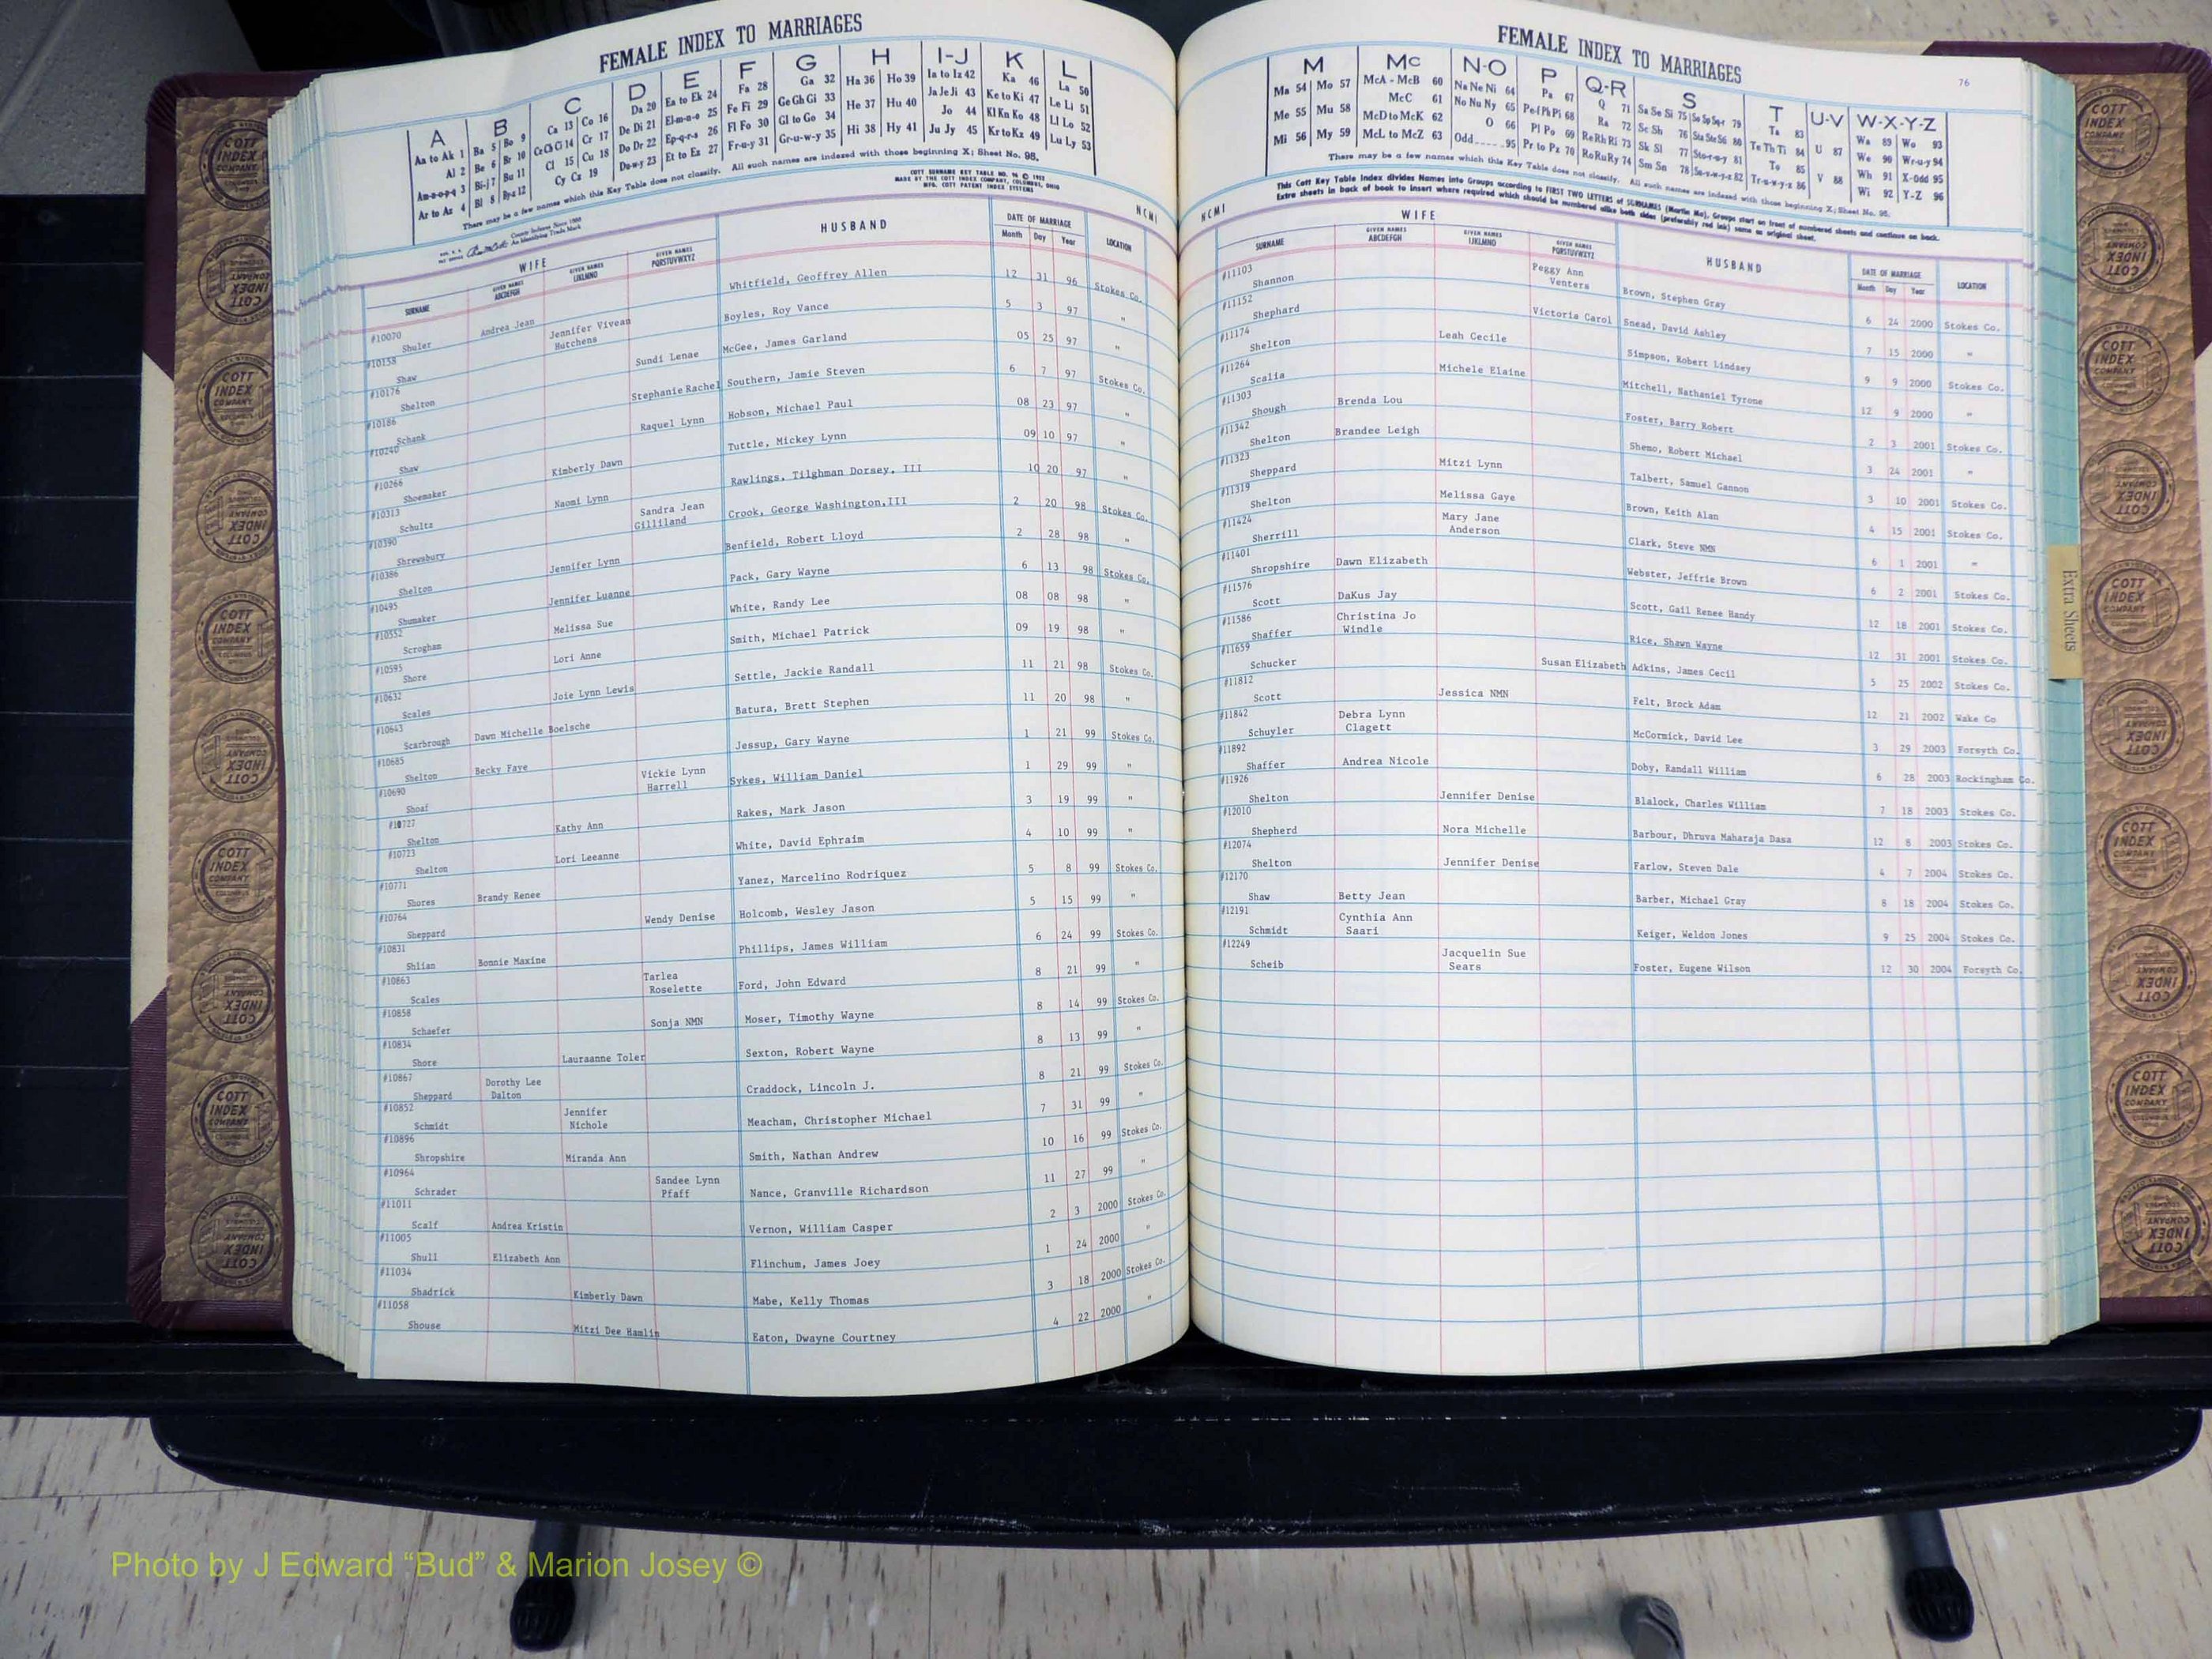 FEMALE INDEX TO MARRIAGES
A B C D E F G H I-J K L
Aa to Ak 1 Ba 5 Bo 9 Ca 13 Co 16 Da 20 Ea to Ek 24 Fa 28 Ga 32 Ha 36 Ho 39 Ia to Iz 42 Ka 46 La 50
Al 2 Be 6 Br 10 Ce Ch Ci 14 Cr 17 De Di 21 El-m-n-o 25 Fe Fi 29 Ge Gh Gi 33 He 37 Hu 40 Ja Je Ji 43 Ke to Ki 47 Le Li 51
Am-n-o-p-q 3 Bi-j 7 Bu 11 Cl 15 Cu 18 Do Dr 22 Ep-q-r-s 26 Fl Fo 30 Gl to Go 34 Hi 38 Hy 41 Jo 44 Kl Kn Ko 48 Ll Lo 52
Ar to Az 4 Bl 8 By-z 12 Cy Cz 19 Du-w-y 23 Et to Ez 27 Fr-u-y 31 Gr-u-w-y 35 Ju Jy 45 Kr to Kz 49 Lu Ly 53
There may be a few names which this Key Table does not classify. All such names are indexed with those beginning X; Sheet No. 95.
COTT SURNAME KEY TABLE NO. 96 © 1952
MADE BY THE COTT INDEX COMPANY, COLUMBUS, OHIO
MFG. COTT PATENT INDEX SYSTEMS
NCMI
County Indexes Since 1888
An Identifying Trade Mark
WIFE HUSBAND DATE OF MARRIAGE LOCATION
SURNAME GIVEN NAMES ABCDEFGH GIVEN NAMES IJKLMNO GIVEN NAMES PQRSTUVWXYZ Month Day Year
#10070 Shuler Andrea Jean Whitfield, Geoffrey Allen 12 31 96 Stokes Co.
#10158 Shaw Jennifer Vivean Hutchens Boyles, Roy Vance 5 3 97 "
#10176 Shelton Sundi Lenae McGee, James Garland 05 25 97 "
#10186 Schank Stephanie Rachel Southern, Jamie Steven 6 7 97 Stokes Co.
#10240 Shaw Raquel Lynn Hobson, Michael Paul 08 23 97 "
#10266 Shoemaker Kimberly Dawn Tuttle, Mickey Lynn 09 10 97 "
#10313 Schultz Naomi Lynn Rawlings, Tilghman Dorsey, III 10 20 97 "
#10390 Shrewsbury Sandra Jean Gilliland Crook, George Washington,III 2 20 98 Stokes Co.
#10386 Shelton Jennifer Lynn Benfield, Robert Lloyd 2 28 98 "
#10495 Shumaker Jennifer Luanne Pack, Gary Wayne 6 13 98 Stokes Co.
#10552 Scrogham Melissa Sue White, Randy Lee 08 08 98 "
#10595 Shore Lori Anne Smith, Michael Patrick 09 19 98 "
#10632 Scales Joie Lynn Lewis Settle, Jackie Randall 11 21 98 Stokes Co.
#10643 Scarbrough Dawn Michelle Boelsche Batura, Brett Stephen 11 20 98 "
#10685 Shelton Becky Faye Jessup, Gary Wayne 1 21 99 Stokes Co.
#10690 Shoaf Vickie Lynn Harrell Sykes, William Daniel 1 29 99 "
#10727 Shelton Kathy Ann Rakes, Mark Jason 3 19 99 "
#10723 Shelton Lori Leeanne White, David Ephraim 4 10 99 "
#10771 Shores Brandy Renee Yanez, Marcelino Rodriquez 5 8 99 Stokes Co.
#10764 Sheppard Wendy Denise Holcomb, Wesley Jason 5 15 99 "
#10831 Shlian Bonnie Maxine Phillips, James William 6 24 99 Stokes Co.
#10863 Scales Tarlea Roselette Ford, John Edward 8 21 99 "
#10858 Schaefer Sonja NMN Moser, Timothy Wayne 8 14 99 Stokes Co.
#10834 Shore Lauraanne Toler Sexton, Robert Wayne 8 13 99 "
#10867 Sheppard Dorothy Lee Dalton Craddock, Lincoln J. 8 21 99 Stokes Co.
#10852 Schmidt Jennifer Nichole Meacham, Christopher Michael 7 31 99 "
#10896 Shropshire Miranda Ann Smith, Nathan Andrew 10 16 99 Stokes Co.
#10964 Schrader Sandee Lynn Pfaff Nance, Granville Richardson 11 27 99 "
#11011 Scalf Andrea Kristin Vernon, William Casper 2 3 2000 Stokes Co.
#11005 Shull Elizabeth Ann Flinchum, James Joey 1 24 2000 "
#11034 Shadrick Kimberly Dawn Mabe, Kelly Thomas 3 18 2000 Stokes Co.
#11058 Shouse Mitzi Dee Hamlin Eaton, Dwayne Courtney 4 22 2000 "
FEMALE INDEX TO MARRIAGES
76
M Mc N-O P Q-R S T U-V W-X-Y-Z
Ma 54 Mo 57 McA - McB 60 Na Ne Ni 64 Pa 67 Q 71 Sa Se Si 75 Se Sp Sq-r 79 Ta 83 U 87 Wa 89 Wo 93
Me 55 Mu 58 McC 61 No Nu Ny 65 Pe-f Ph Pi 68 Ra 72 Sc Sh 76 Sta Ste S6 80 Te Th Ti 84 V 88 We 90 Wr-u-y 94
Mi 56 My 59 McD to McK 62 O 66 Pl Po 69 Re Rh Ri 73 Sk Sl 77 Sto-r-u-y 81 To 85 Wh 91 X-Odd 95
McL to McZ 63 Odd 95 Pr to Pz 70 Ro Ru Ry 74 Sm Sn 78 Su-v-w-y-z 82 Tr-u-w-y-z 86 Wi 92 Y-Z 96
There may be a few names which this Key Table does not classify. All such names are indexed with those beginning X; Sheet No. 95.
This Cott Key Table Index divides Names into Groups according to FIRST TWO LETTERS of SURNAMES (Martin Ma). Groups start on front of numbered sheets and continue on back.
Extra sheets in back of book to insert where required which should be numbered alike both sides (preferably red ink) same as original sheet.
NCMI
WIFE HUSBAND DATE OF MARRIAGE LOCATION
SURNAME GIVEN NAMES ABCDEFGH GIVEN NAMES IJKLMNO GIVEN NAMES PQRSTUVWXYZ Month Day Year
#11103 Shannon Peggy Ann Venters Brown, Stephen Gray 6 24 2000 Stokes Co.
#11152 Shephard Victoria Carol Snead, David Ashley 7 15 2000 "
#11174 Shelton Leah Cecile Simpson, Robert Lindsey 9 9 2000 Stokes Co.
#11264 Scalia Michele Elaine Mitchell, Nathaniel Tyrone 12 9 2000 "
#11303 Shough Brenda Lou Foster, Barry Robert 2 3 2001 Stokes Co.
#11342 Shelton Brandee Leigh Shemo, Robert Michael 3 24 2001 "
#11323 Sheppard Mitzi Lynn Talbert, Samuel Gannon 3 10 2001 Stokes Co.
#11319 Shelton Melissa Gaye Brown, Keith Alan 4 15 2001 Stokes Co.
#11424 Sherrill Mary Jane Anderson Clark, Steve NMN 6 1 2001 "
#11401 Shropshire Dawn Elizabeth Webster, Jeffrie Brown 6 2 2001 Stokes Co.
#11576 Scott DaKus Jay Scott, Gail Renee Handy 12 18 2001 Stokes Co.
#11586 Shaffer Christina Jo Windle Rice, Shawn Wayne 12 31 2001 Stokes Co.
#11659 Schucker Susan Elizabeth Adkins, James Cecil 5 25 2002 Stokes Co.
#11812 Scott Jessica NMN Felt, Brock Adam 12 21 2002 Wake Co
#11842 Schuyler Debra Lynn Clagett McCormick, David Lee 3 29 2003 Forsyth Co.
#11892 Shaffer Andrea Nicole Doby, Randall William 6 28 2003 Rockingham Co.
#11926 Shelton Jennifer Denise Blalock, Charles William 7 18 2003 Stokes Co.
#12010 Shepherd Nora Michelle Barbour, Dhruva Maharaja Dasa 12 8 2003 Stokes Co.
#12074 Shelton Jennifer Denise Farlow, Steven Dale 4 7 2004 Stokes Co.
#12170 Shaw Betty Jean Barber, Michael Gray 8 18 2004 Stokes Co.
#12191 Schmidt Cynthia Ann Saari Keiger, Weldon Jones 9 25 2004 Stokes Co.
#12249 Scheib Jacquelin Sue Sears Foster, Eugene Wilson 12 30 2004 Forsyth Co.
Extra Sheets
COTT INDEX COMPANY
Photo by J Edward “Bud” & Marion Josey ©